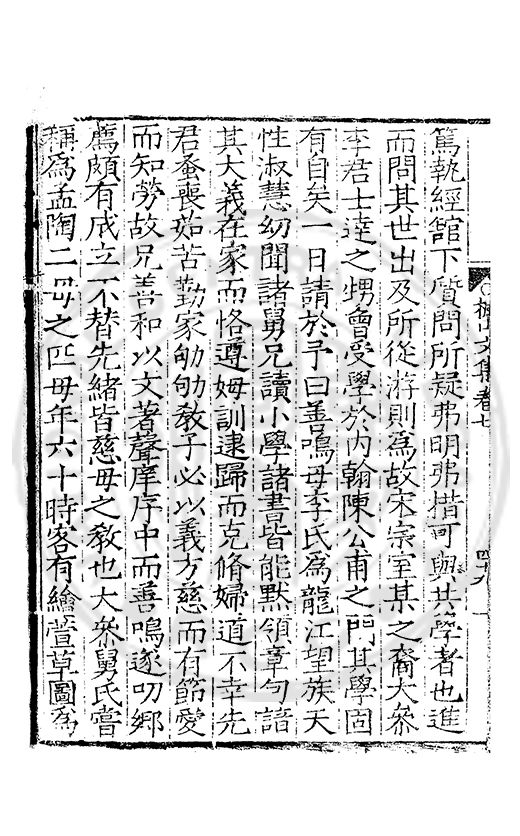 篤執經館下質問所疑弗明弗措可與共學者也進
而問其世出及所從游則爲故宋宗室某之裔大叅
李君士達之甥曾受學於內翰陳公甫之門其學固
有自矣一日請於予曰善鳴母李氏爲龍江望族天
性淑慧幼聞諸舅兄讀小學諸書皆能默領章句諳
其大義在家而恪遵姆訓逮歸而克脩婦道不幸先
君蚤喪茹苦勤家劬劬敎子必以義方慈而有節愛
而知勞故兄善和以文著聲庠序中而善鳴遂叨鄉
薦頗有成立不替先緒皆慈母之敎也大叅舅氏嘗
稱爲孟陶二母之匹母年六十時客有繪萱草圖爲
文集卷七
四十九